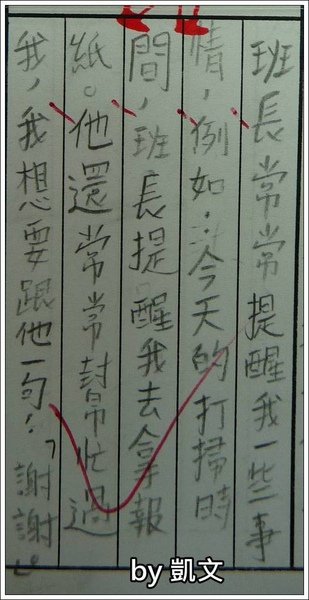 班長常常提醒我一些事
情，例如：今天的打掃時
間，班長提醒我去拿報
紙。他還常常幫忙過
我，我想要跟他一句：「謝謝」
by 凱文